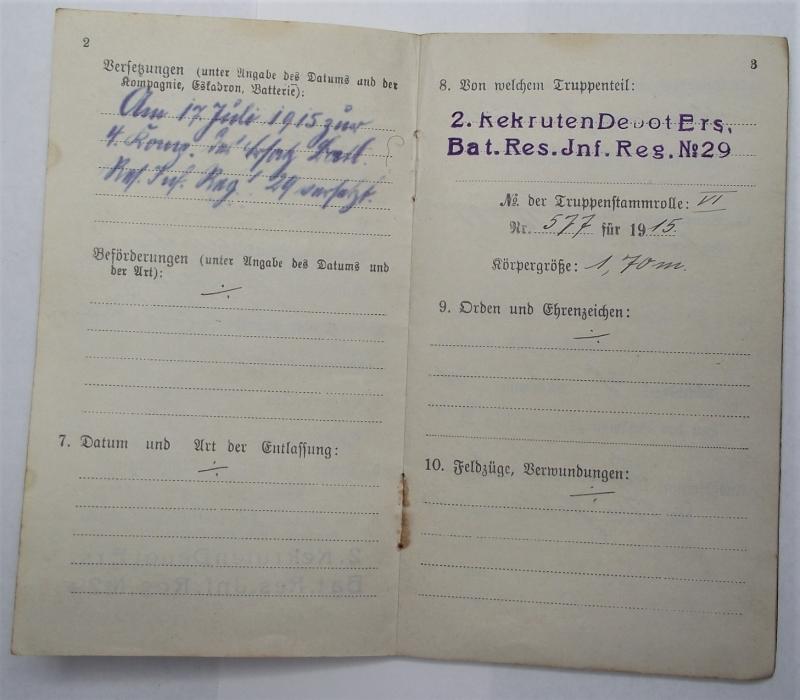 2
Versetzungen (unter Angabe des Datums und der
Kompagnie, Eskadron, Batterie):
Am 17. Juli 1915 zur
4. Komp. des Ersatz Batl.
Res. Inf. Reg. 29 versetzt.
Beförderungen (unter Angabe des Datums und
der Art):
÷
7. Datum und Art der Entlassung:
÷
3
8. Von welchem Truppenteil:
2. RekrutenDepotErs.
Bat.Res.Jnf.Reg.№29
№. der Truppenstammrolle: VI
Nr. 577 für 1915.
Körpergröße: 1,70 m.
9. Orden und Ehrenzeichen:
÷
10. Feldzüge, Verwundungen:
÷